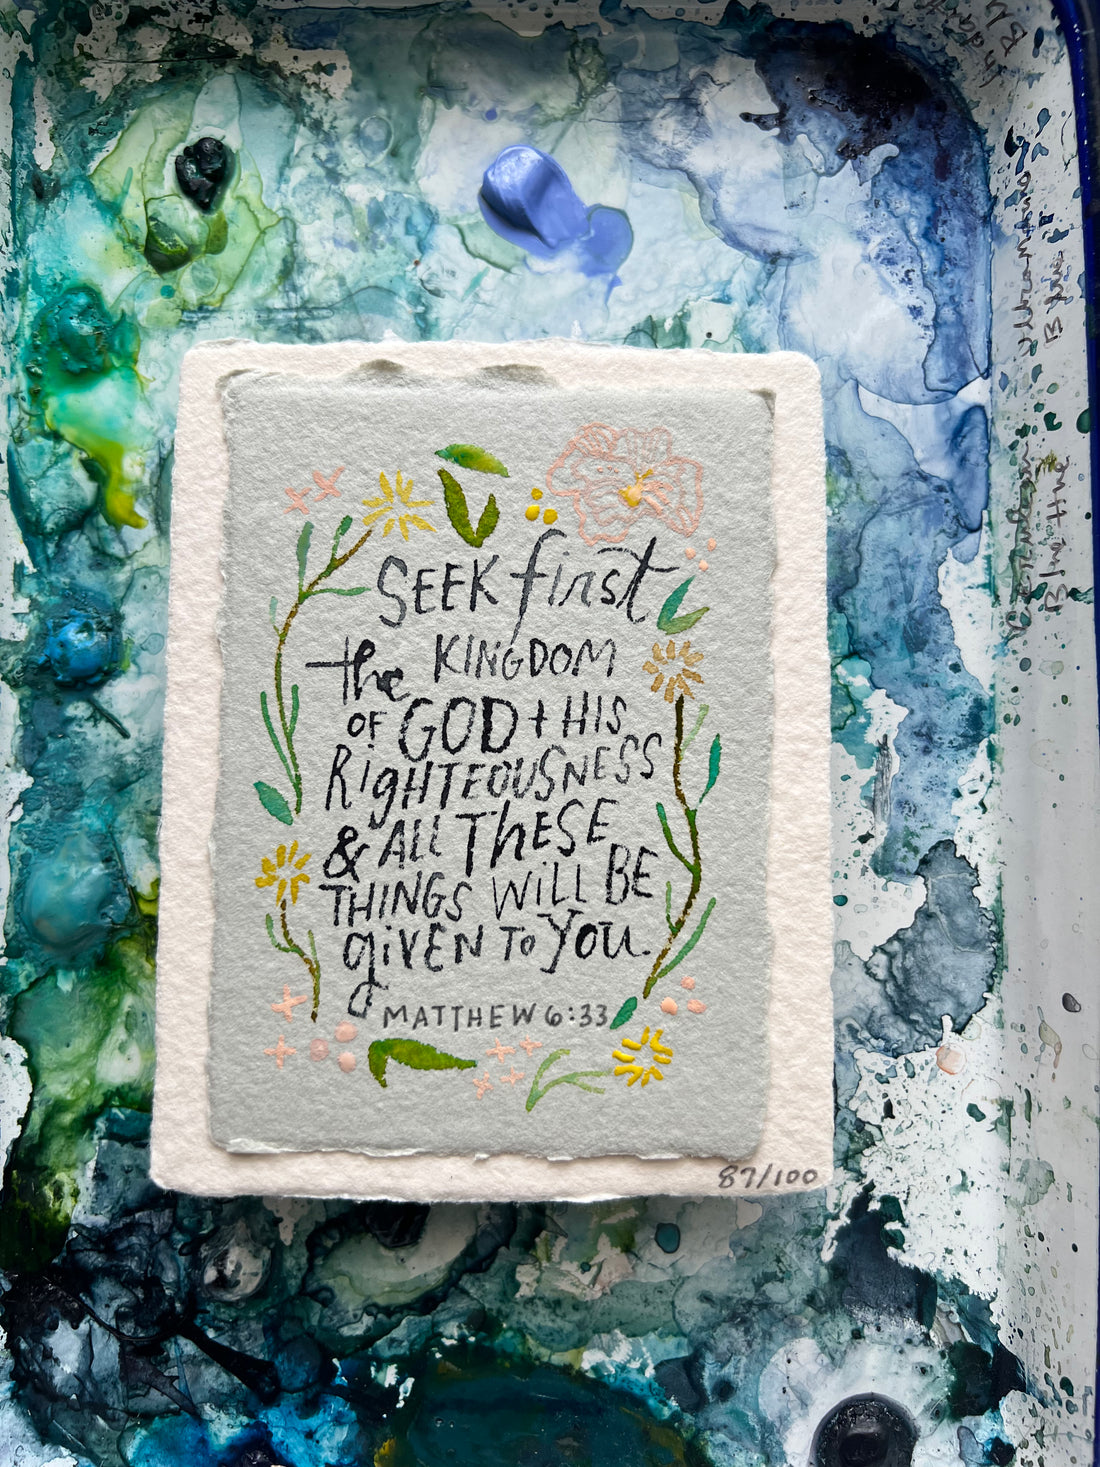 SEEK first
the KINGDOM
OF GOD + HIS
RigHTEOUSNESS
& ALL ThESE
THINGS WiLL BE
giVEN To You.
MATTHEW 6:33
87/100
Blue Hue